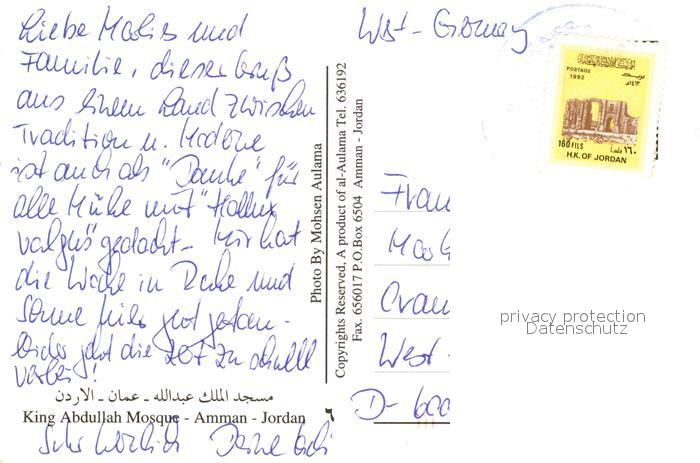 Liebe Marlies und
Familie, dieser Gruß
aus einem Land zwischen
Tradition u. Moderne
ist auch als "Danke" für
alle Mühe mit "Hallux
valgus" gedacht. Mir hat
die Woche in Ruhe und
Sonne hier gut getan.
Leider geht die Zeit zu schnell
vorbei!
Sehr herzlich Deine
West-Germany
POSTAGE
1992
160 FILS ١٦٠ فلسا
H.K. OF JORDAN
Photo By Mohsen Aulama
Copyrights Reserved. A product of al-Aulama Tel. 636192
Fax. 656017 P.O.Box 6504 Amman - Jordan
Frau
West-
D-
privacy protection
Datenschutz
مسجد الملك عبدالله ـ عمان ـ الاردن
King Abdullah Mosque - Amman - Jordan ٦